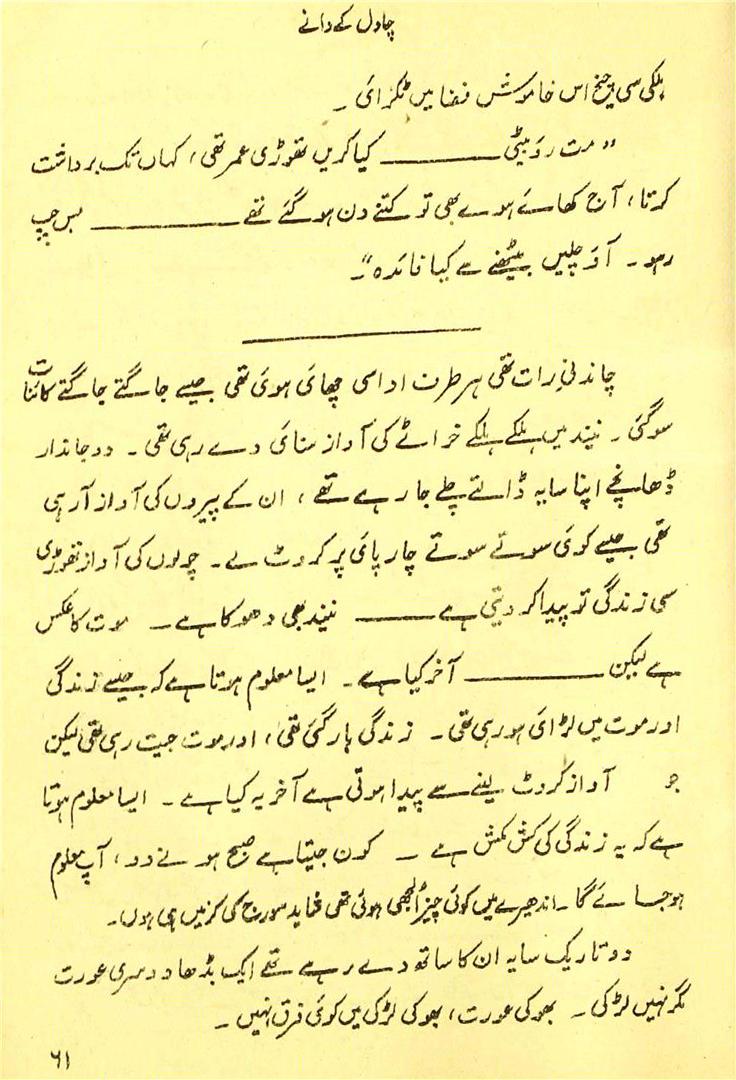 چاول کے دانے
ہلکی سی چیخ اس خاموش فضا میں ٹکرائی ۔
" مت رو بیٹی ——— کیا کریں تھوڑی عمر تھی، کہاں تک برداشت
کرتا، آج کھائے ہوے بھی تو کتنے دن ہو گئے تھے ——— بس چپ
رہو ۔ آؤ چلیں بیٹھنے سے کیا فائدہ "۔
چاندنی رات تھی ہر طرف اداسی چھائی ہوی تھی جیسے جاگتے جاگتے کائنات
سوگئی ۔ نیند میں ہلکے ہلکے خراٹے کی آواز سنائی دے رہی تھی ۔ دو جاندار
ڈھانچے اپنا سایہ ڈالتے چلے جا رہے تھے ، ان کے پیروں کی آواز آرہی
تھی جیسے کوئی سوتے سوتے چارپائی پر کروٹ لے ۔ چولوں کی آواز تھوڑی
سی زندگی تو پیدا کر دیتی ہے ——— نیند بھی دھوکا ہے ۔ موت کا عکس
ہے لیکن ——— آخر کیا ہے ۔ ایسا معلوم ہوتا ہے کہ جیسے زندگی
اور موت میں لڑائی ہو رہی تھی ۔ زندگی ہار گئی تھی ، اور موت جیت رہی تھی لیکن
جو آواز کروٹ لینے سے پیدا ہوتی ہے آخر یہ کیا ہے ۔ ایسا معلوم ہوتا
ہے کہ یہ زندگی کی کش مکش ہے ۔ کون جیتا ہے صبح ہونے دو ، آپ معلوم
ہو جائے گا ۔ اندھیرے میں کوئی چیز اُلجھی ہوئی تھی شاید سورج کی کرنیں ہی ہوں ۔
دو تاریک سایہ ان کا ساتھ دے رہے تھے ایک بڈھا دوسری عورت
مگر نہیں لڑکی ۔ بھوکی عورت ، بھوکی لڑکی میں کوئی فرق نہیں ۔
۶۱